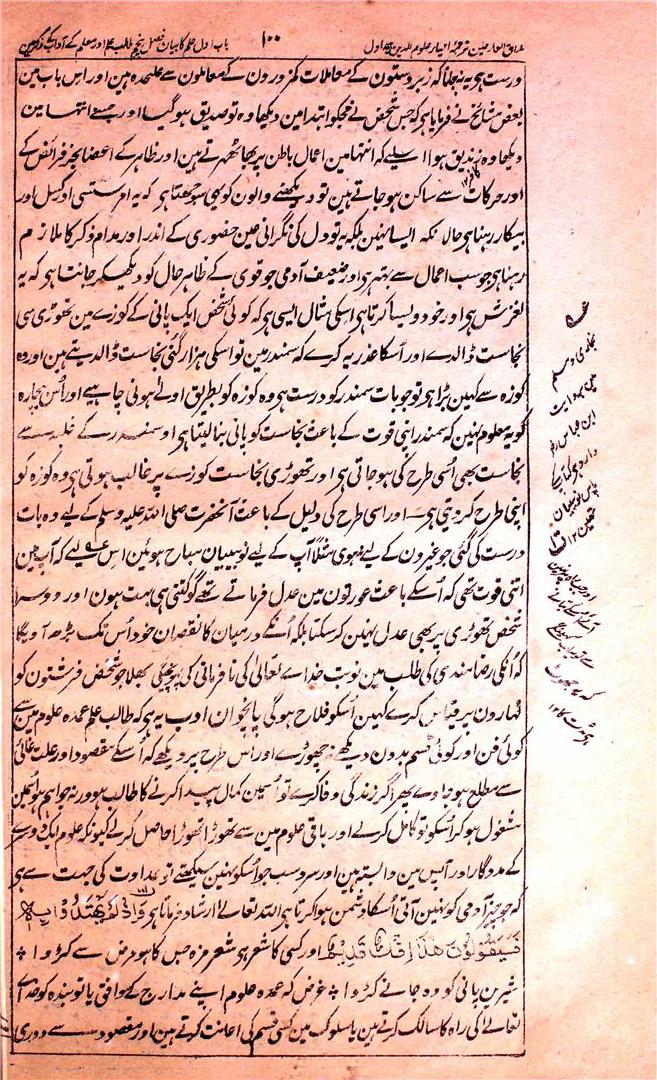 مذاق العارفین ترجمہ احیاء علوم الدین جلد اول
۱۰۰
باب اول علم کا بیان فصل پنجم طالب علم اور معلم کے آداب کے ذکر میں
درست ہو یہ نہ جانا کہ زبردستون کے معاملات کمزورون کے معاملون سے علیحدہ ہین اور اس باب مین
بعض مشائخ نے فرمایا ہو کہ جس شخص نے مجکو ابتدا مین دیکھا وہ تو صدیق ہو گیا اور جسنے انتہا مین
دیکھا وہ زندیق ہوا اسلیے کہ انتہا مین اعمال باطن پر جا ٹھہرتے ہین اور ظاہر کے اعضا بجز فرائض کے
اور حرکات سے ساکن ہو جاتے ہین تو دیکھنے والون کو یہی سوجھتا ہو کہ یہ امر سستی اور کسل اور
بیکار رہنا ہو حالانکہ ایسا نہین بلکہ یہ تو دل کی نگرانی عین حضوری کے اندر اور مدام ذکر کا ملازم
رہنا ہو جو سب اعمال سے بہتر ہو اور ضعیف آدمی جو قوی کے ظاہر حال کو دیکھکر جانتا ہو کہ یہ
لغزش ہو اور خود ویسا کرتا ہو اسکی مثال ایسی ہو کہ کوئی شخص ایک پانی کے کوزے مین تھوڑی سی
نجاست ڈالدے اور اسکا عذر یہ کرے کہ سمندر مین تو اسکی ہزار گنی نجاست ڈالدیتے ہین اور وہ
کوزہ سے کہین بڑا ہو تو جو بات سمندر کو درست ہو وہ کوزہ کو بطریق اولے ہونی چاہیے اور اُس بیچارہ
کو یہ معلوم نہین کہ سمندر اپنی قوت کے باعث نجاست کو پانی بنا لیتا ہو اور سمندر کے غلبہ سے
نجاست بھی اُسی طرح کی ہو جاتی ہو اور تھوڑی نجاست کوزے پر غالب ہوتی ہو وہ کوزہ کو
اپنی طرح کر دیتی ہو اور اسی طرح کی دلیل کے باعث آنحضرت صلی اللہ علیہ وسلم کے لیے وہ بات
درست کی گئی جو غیرون کے لیے نہوی مثلاً آپ کے لیے نو بیبیان مباح ہوئین اس لیے کہ آپ مین
اتنی قوت تھی کہ اُسکے باعث عورتون مین عدل فرماتے تھے گو کتنی ہی بہت ہون اور دوسرا
شخص تھوڑی پر بھی عدل نہین کر سکتا بلکہ اُنکے درمیان کا نقصان خود اُس تک بڑھ آویگا
کہ اُنکی رضامندی کی طلب مین نوبت خداے تعالی کی نافرمانی کی پہونچیگی بھلا جو شخص فرشتون کو
لہارون پر قیاس کرے کہین اُسکو فلاح ہو گی پانچوان ادب یہ ہو کہ طالب علم عمدہ علوم مین سے
کوئی فن اور کوئی قسم بدون دیکھے نہ چھوڑے اور اس طرح پر دیکھے کہ اُسکے مقصود اور علت غائی
سے مطلع ہو جاوے پھر اگر زندگی وفا کرے تو اُسمین کمال پیدا کرنے کا طالب ہو ورنہ جو اہم ہو اُسمین
مشغول ہو کر اُسکو تو کامل کرلے اور باقی علوم مین سے تھوڑا تھوڑا حاصل کرلے کیونکہ علوم ایک دوسرے
کے مددگار اور آپس مین وابستہ ہین اور سردست جو اُسکو نہین سیکھتے تو عداوت کی جہت سے ہو
کہ جو چیز آدمی کو نہین آتی اُسکا دشمن ہوا کرتا ہو اللہ تعالے ارشاد فرماتا ہو وَاِذْ لَمْ یَهْتَدُوْا بِهٖ
فَسَیَقُوْلُوْنَ هٰذَا اِفْكٌ قَدِیْمٌ اور کسی کا شعر ہو شعر مزہ جس کا ہو مرض سے کڑوا ۞
شیرین پانی کو وہ جانے کڑوا ۞ غرض کہ عمدہ علوم اپنے مدارج کے موافق یا تو بندہ کو خداے
تعالے کی راہ کا سالک کرتے ہین یا سلوک مین کسی قسم کی اعانت کرتے ہین اور مقصود سے دوری
بخاری و مسلم
مین بروایت
ابن عباس رض
وارد ہو کہ آپ کے
پاس نو بیبیان
تھین ۱۲